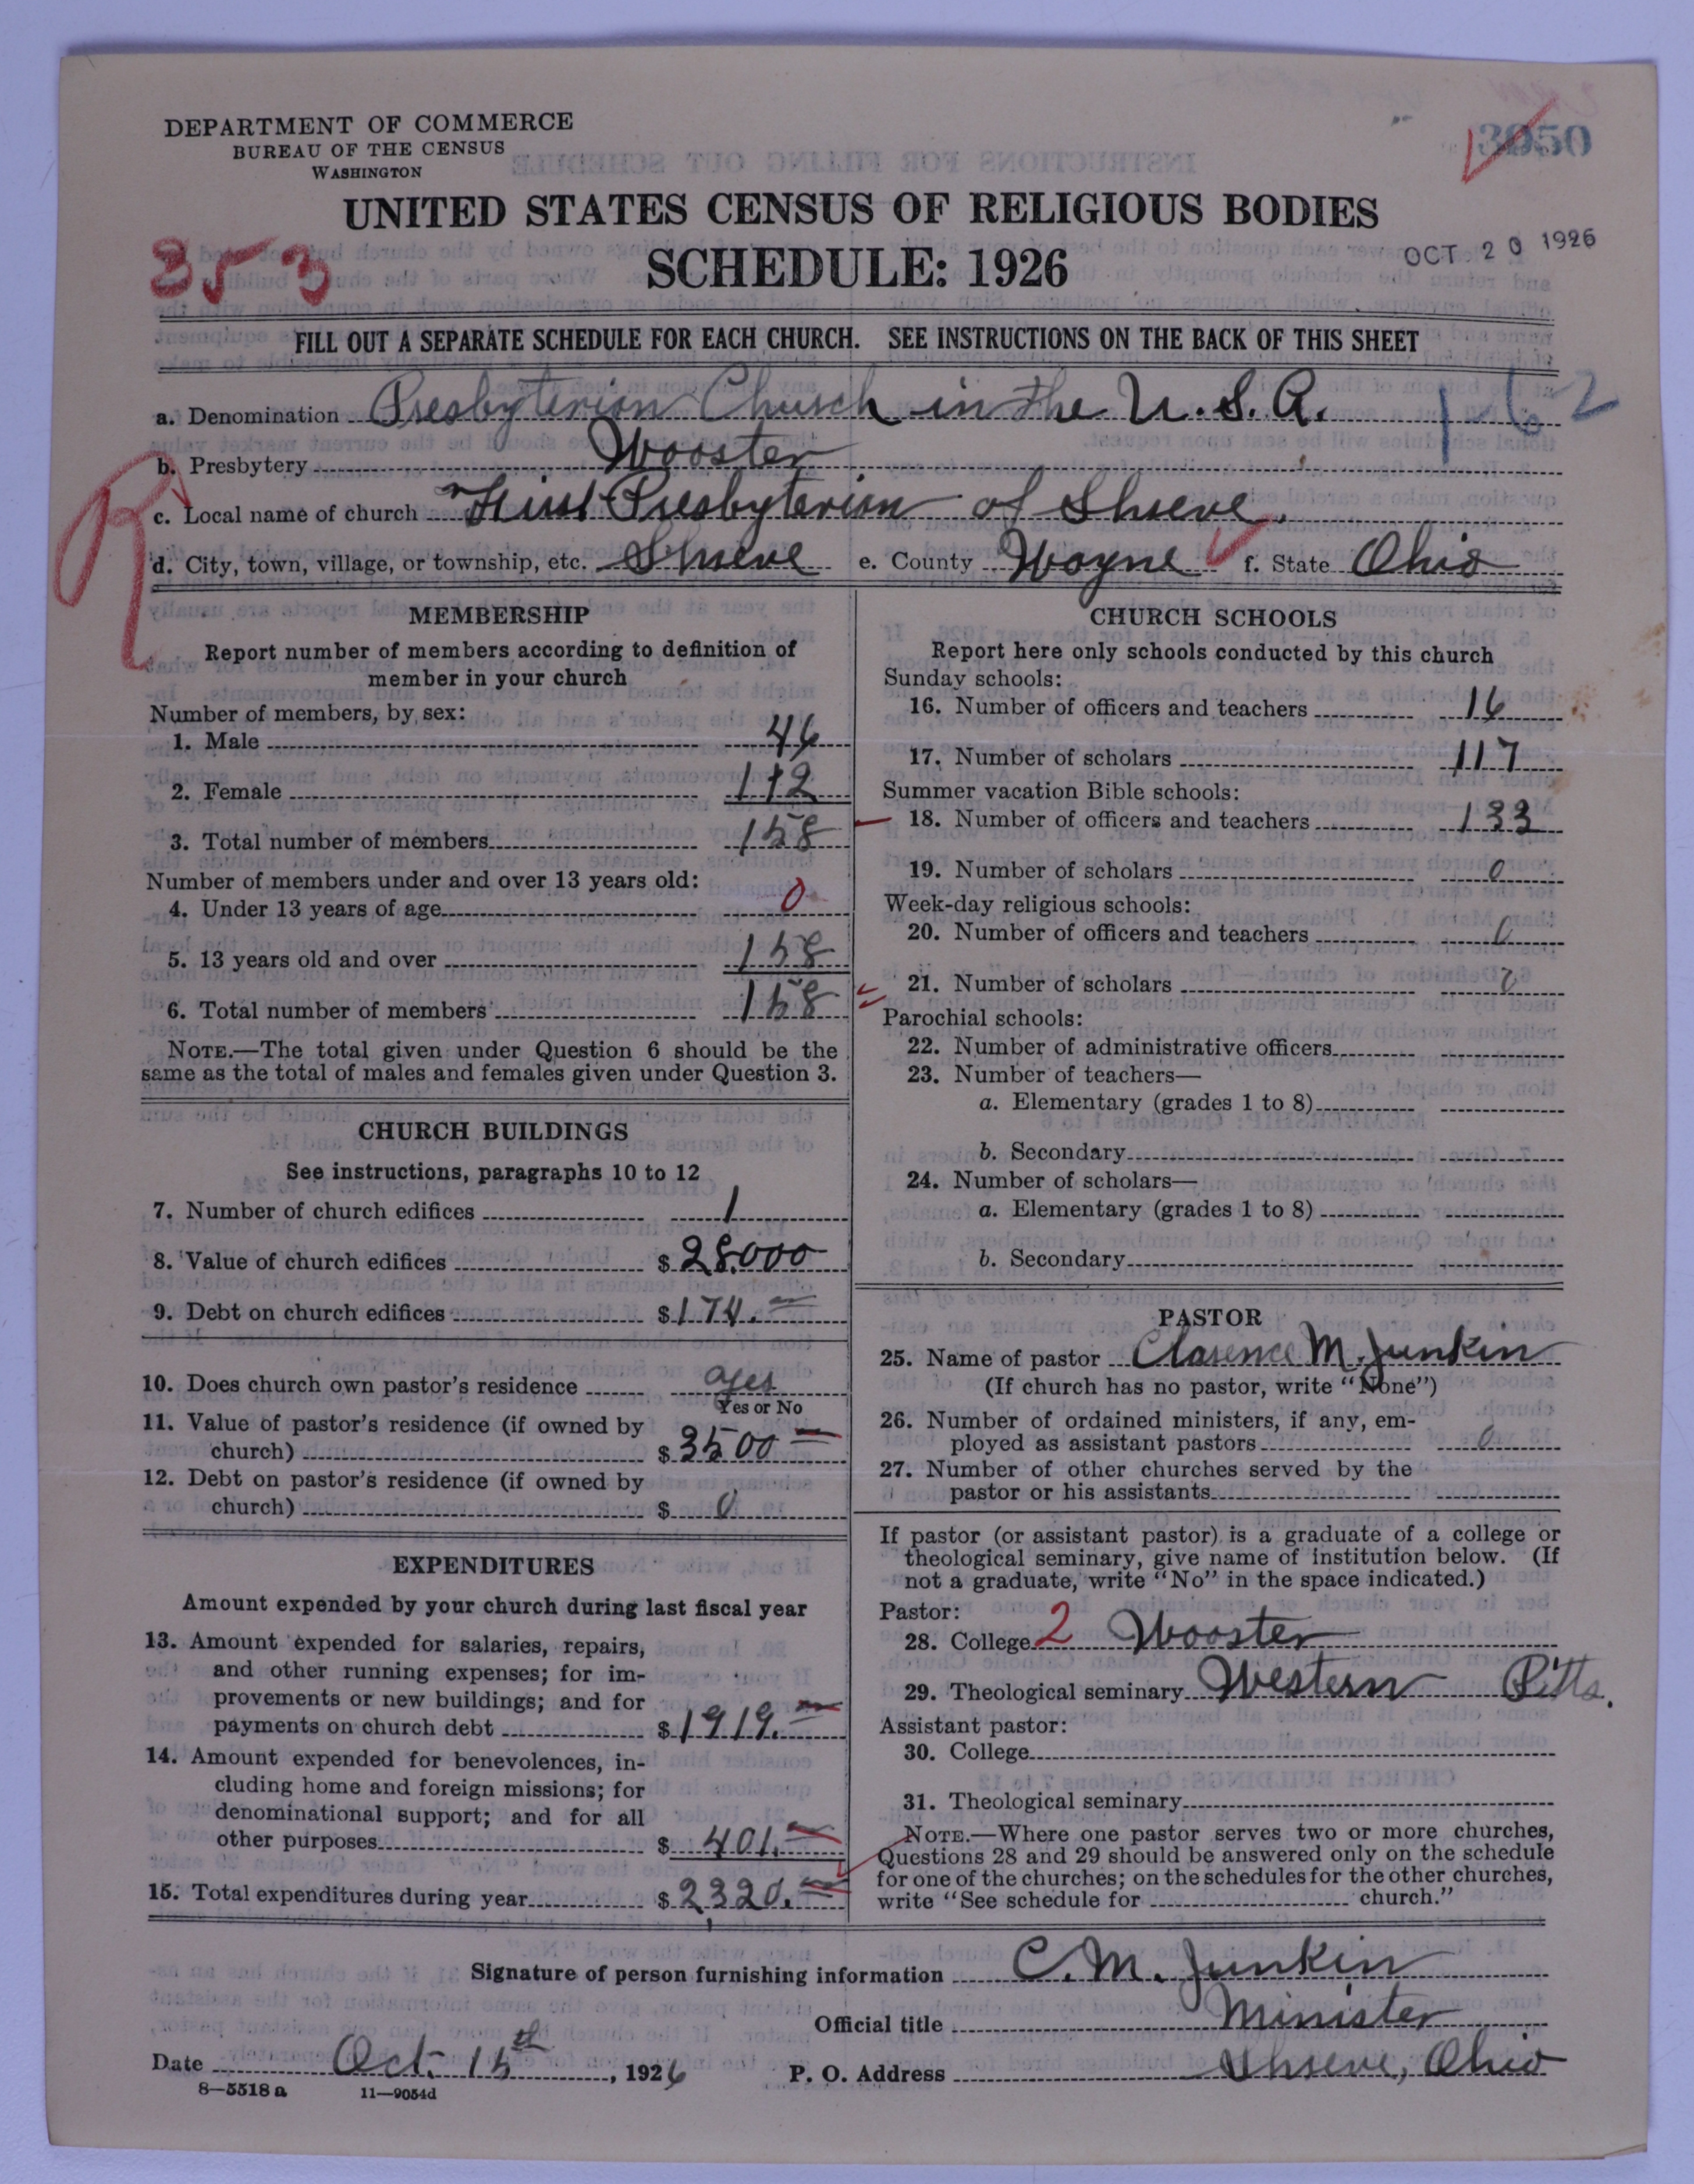 DEPARTMENT OF COMMERCE
BUREAU OF THE CENSUS
WASHINGTON
3950
UNITED STATES CENSUS OF RELIGIOUS BODIES
SCHEDULE: 1926
353
OCT 20 1926
FILL OUT A SEPARATE SCHEDULE FOR EACH CHURCH. SEE INSTRUCTIONS ON THE BACK OF THIS SHEET
a. Denomination Presbyterian Church in the U.S.A. 1-62
b. Presbytery Wooster
R
c. Local name of church First Presbyterian of Shreve.
d. City, town, village, or township, etc. Shreve e. County Wayne f. State Ohio
MEMBERSHIP
Report number of members according to definition of
member in your church
Number of members, by sex:
1. Male 46
2. Female 112
3. Total number of members 158
Number of members under and over 13 years old:
4. Under 13 years of age 0
5. 13 years old and over 158
6. Total number of members 158
NOTE.—The total given under Question 6 should be the
same as the total of males and females given under Question 3.
CHURCH BUILDINGS
See instructions, paragraphs 10 to 12
7. Number of church edifices 1
8. Value of church edifices $ 28,000
9. Debt on church edifices $ 174.
10. Does church own pastor's residence yes
Yes or No
11. Value of pastor's residence (if owned by
church) $ 3500
12. Debt on pastor's residence (if owned by
church) $ 0
EXPENDITURES
Amount expended by your church during last fiscal year
13. Amount expended for salaries, repairs,
and other running expenses; for im-
provements or new buildings; and for
payments on church debt $ 1919.
14. Amount expended for benevolences, in-
cluding home and foreign missions; for
denominational support; and for all
other purposes $ 401.
15. Total expenditures during year $ 2,320.
CHURCH SCHOOLS
Report here only schools conducted by this church
Sunday schools:
16. Number of officers and teachers 16
17. Number of scholars 117
Summer vacation Bible schools:
18. Number of officers and teachers 133
19. Number of scholars 0
Week-day religious schools:
20. Number of officers and teachers 0
21. Number of scholars 0
Parochial schools:
22. Number of administrative officers
23. Number of teachers—
a. Elementary (grades 1 to 8)
b. Secondary
24. Number of scholars—
a. Elementary (grades 1 to 8)
b. Secondary
PASTOR
25. Name of pastor Clarence M. Junkin
(If church has no pastor, write "None")
26. Number of ordained ministers, if any, em-
ployed as assistant pastors 0
27. Number of other churches served by the
pastor or his assistants
If pastor (or assistant pastor) is a graduate of a college or
theological seminary, give name of institution below. (If
not a graduate, write "No" in the space indicated.)
Pastor:
28. College 2 Wooster
29. Theological seminary Western Pitts.
Assistant pastor:
30. College
31. Theological seminary
NOTE.—Where one pastor serves two or more churches,
Questions 28 and 29 should be answered only on the schedule
for one of the churches; on the schedules for the other churches,
write "See schedule for church."
Signature of person furnishing information C. M. Junkin
Official title Minister
Date Oct. 15th, 1926 P. O. Address Shreve, Ohio
8—5518 a 11—9054d